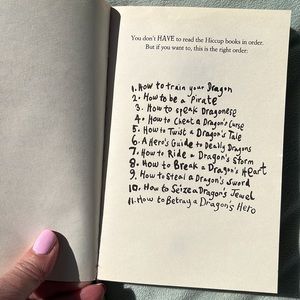 You don't HAVE to read the Hiccup books in order.
But if you want to, this is the right order:
1. How to train your Dragon
2. How to be a Pirate
3. How to speak Dragonese
4. How to Cheat a Dragon's Curse
5. How to Twist a Dragon's Tale
6. A Hero's Guide to Deadly Dragons
7. How to Ride a Dragon's Storm
8. How to Break a Dragon's Heart
9. How to Steal a Dragon's Sword
10. How to Seize a Dragon's Jewel
11. How to Betray a Dragon's Hero